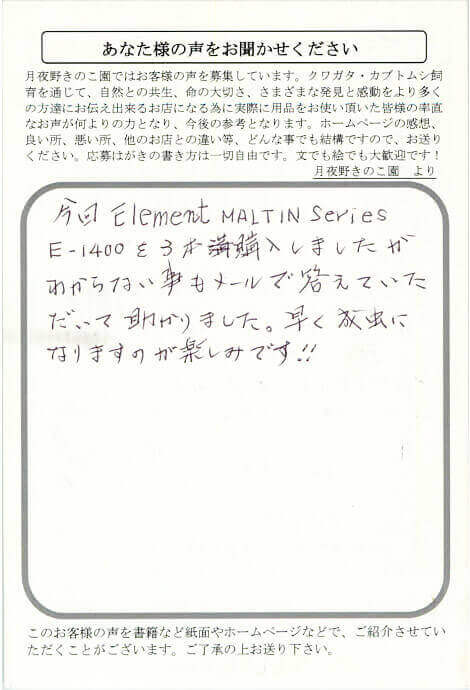 あなた様の声をお聞かせください
月夜野きのこ園ではお客様の声を募集しています。クワガタ・カブトムシ飼
育を通じて、自然との共生、命の大切さ、さまざまな発見と感動をより多く
の方達にお伝え出来るお店になる為に実際に用品をお使い頂いた皆様の率直
なお声が何よりの力となり、今後の参考となります。ホームページの感想、
良い所、悪い所、他のお店との違い等、どんな事でも結構ですので、お送り
ください。応募はがきの書き方は一切自由です。文でも絵でも大歓迎です！
月夜野きのこ園 より
今回 Element MALTIN Series
E-1400を3本購入しましたが
わからない事もメールで答えていた
だいて助かりました。早く成虫に
なりますのが楽しみです!!
このお客様の声を書籍など紙面やホームページなどで、ご紹介させてい
ただくことがございます。ご了承の上お送り下さい。